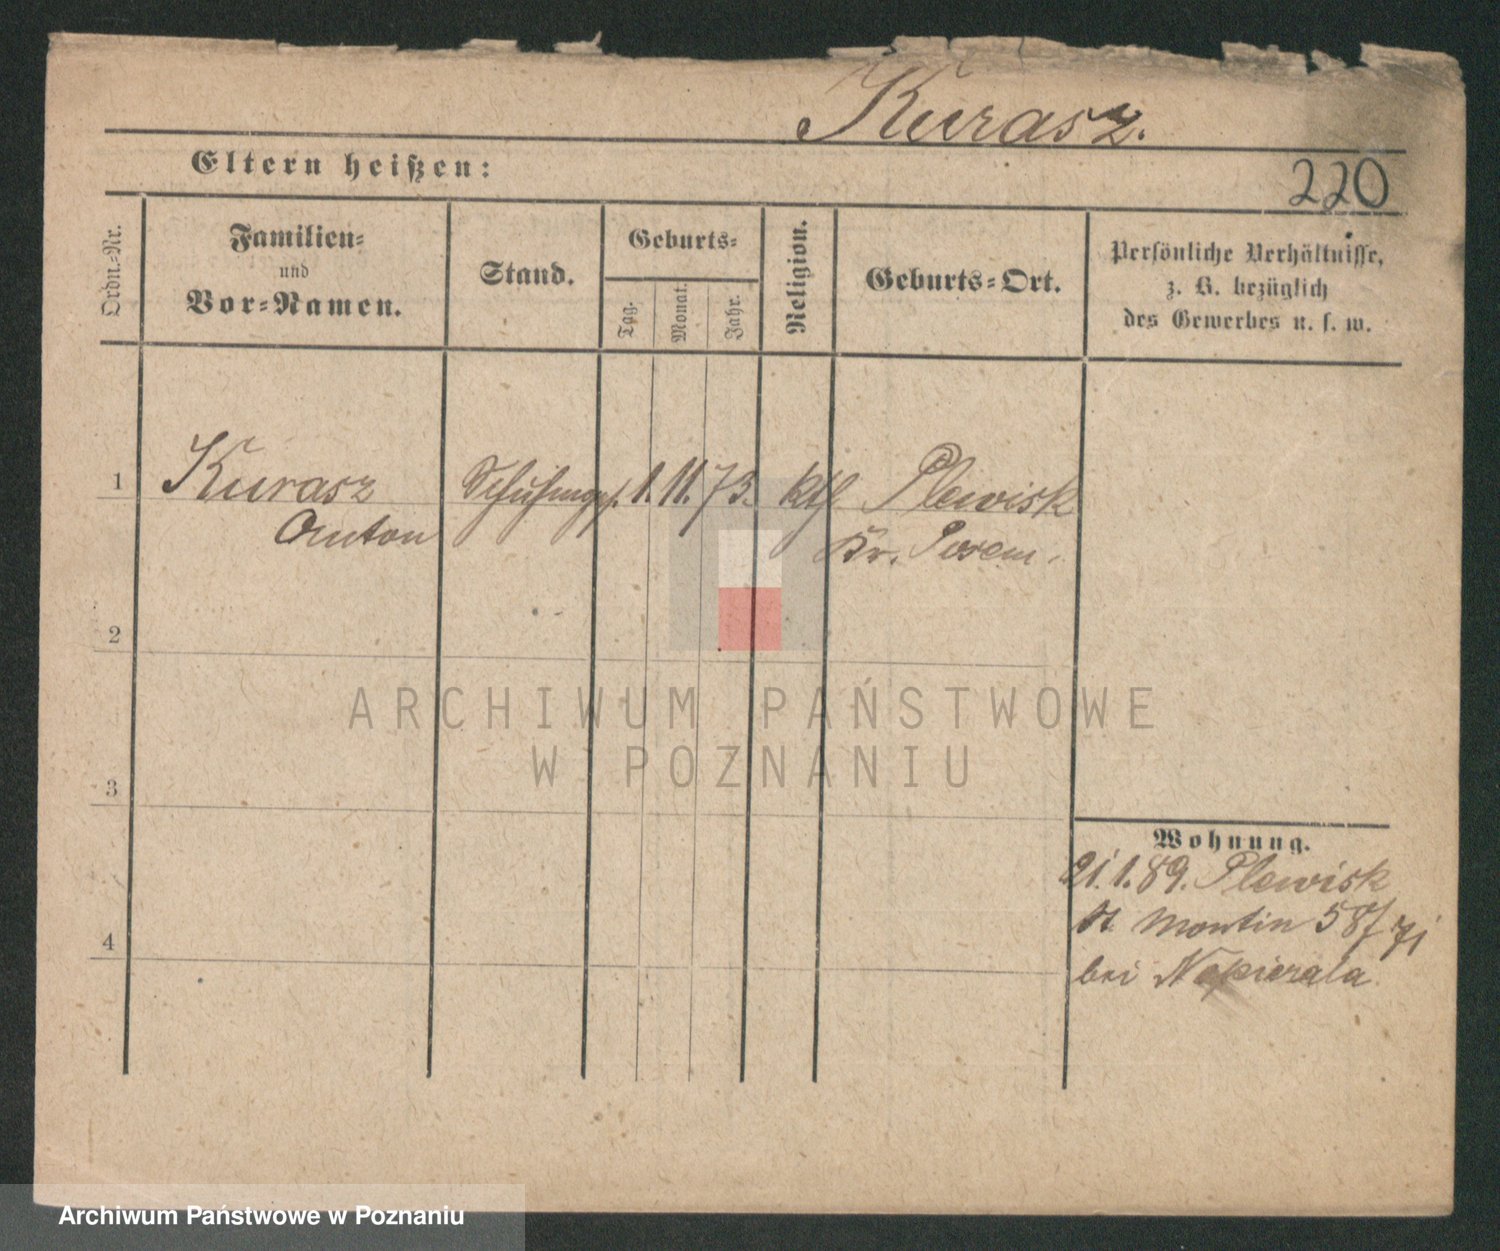 Kurasz.
Eltern heißen:
220
Ordn.-Nr.
Familien-
und
Vor-Namen.
Stand.
Geburts-
Tag.
Monat.
Jahr.
Religion.
Geburts-Ort.
Persönliche Verhältnisse,
z. B. bezüglich
des Gewerbes u. s. w.
1
Kurasz
Anton
1. 11. 73.
Kth.
Plewisk
Kr. Posen.
2
ARCHIWUM PAŃSTWOWE
W POZNANIU
3
Wohnung.
21. 1. 89. Plewisk
St Martin 58/
4
bei Napierala
Archiwum Państwowe w Poznaniu